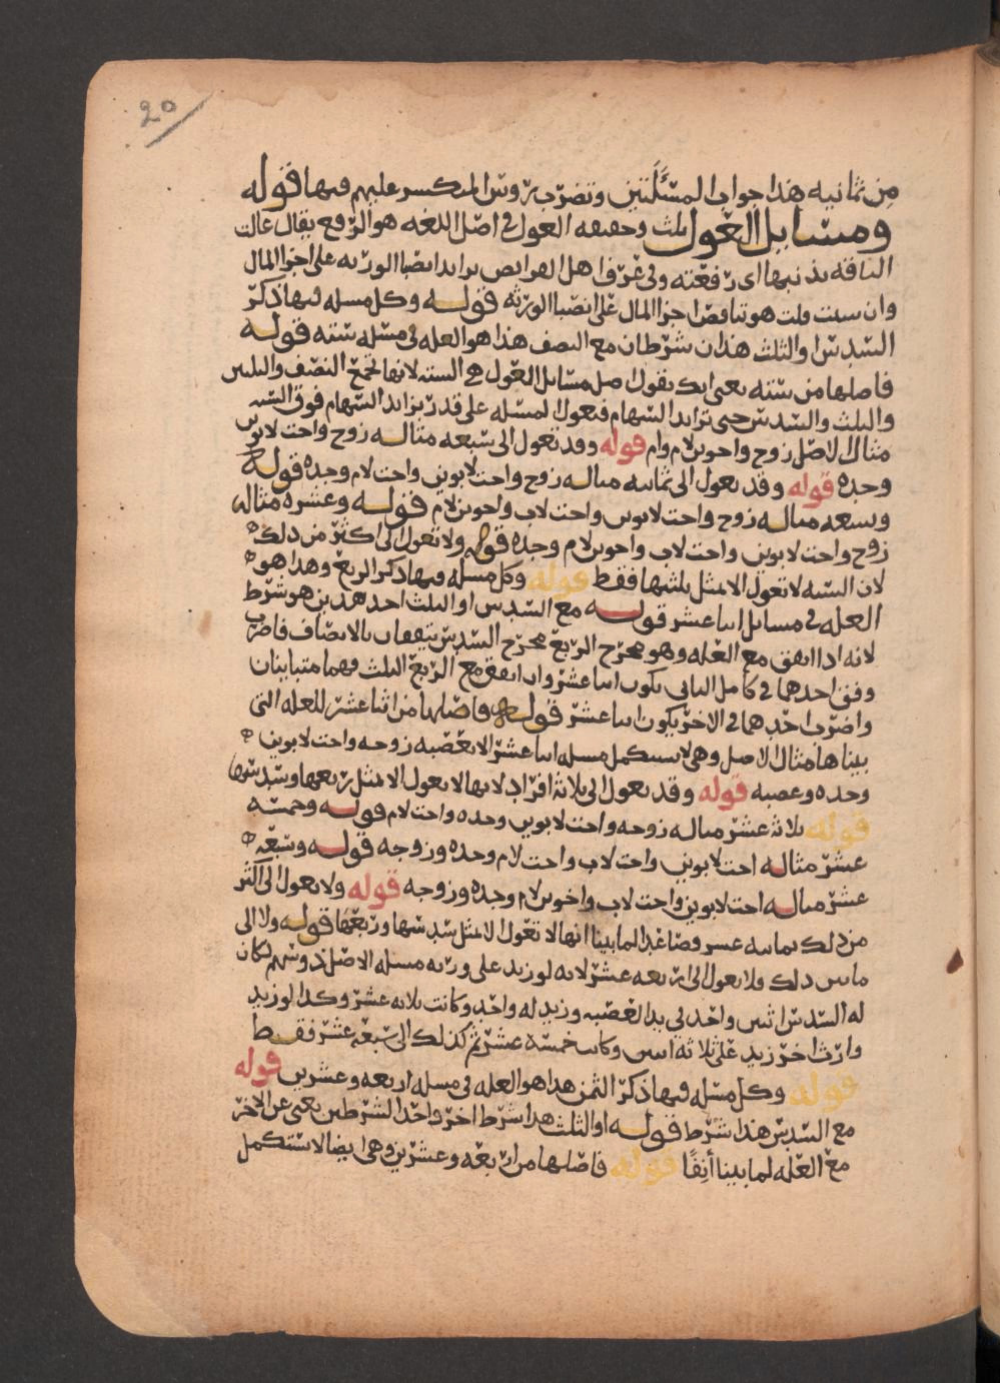 20
من ثمانيه هذا جواب المسئلتين وتضرب رؤس المنكسر عليهم فيها قوله
ومسايل العول ثلث وحقيقه العول في اصل اللغه هو الرفع يقال عالت
الناقه بذنبها اى رفعته وفي عرف اهل الفرايض تزايد انصبا الورثه على اجزا المال
وان شيت قلت هو تناقص اجزا المال على انصبا الورثه قوله وكل مسله فيها ذكر
السدس والثلث هذان شرطان مع النصف هذا هو العله في مسله سته قوله
فاصلها من سته يعنى انك تقول اصل مسايل العول هي السته لانها تجمع النصف والثلثين
والثلث والسدس حتى تزايد السهام فتعول المسله على قدر تزايد السهام فوق السته
مثال الاصل زوج واخوين لام وام قوله وقد تعول الى سبعه مثاله زوج واخت لابوين
وجده قوله وقد تعول الى ثمانيه مثاله زوج واخت لابوين واخت لام وجده قوله
وتسعه مثاله زوج واخت لابوين واخت لاب واخوين لام قوله وعشره مثاله
زوج واخت لابوين واخت لاب واخوين لام وجده قوله ولا تعول الى اكثر من ذلك
لان السته لا تعول الا بمثل ثلثيها فقط قوله وكل مسله فيها ذكر الربع وهذا هو
العله في مسايل اثنا عشر قوله مع السدس او الثلث احد هذين هو شرط
لانه اذا اتفق مع العله وهو مخرج الربع مخرج السدس يتفقان بالانصاف فاضرب
وفق احدهما في كامل الثاني يكون اثنا عشر وان اتفق مع الربع الثلث فهما متباينان
واضرب احدهما في الاخر يكون اثنا عشر قوله فاصلها من اثنا عشر للعله التى
بيناها مثال الاصل وهي لا تستكمل مسله اثنا عشر الا بعصبه زوجه واخت لابوين
وجده وعصبه قوله وقد تعول الى ثلاثه افراد لانها لا تعول الا بمثل ربعها وسدسها
قوله ثلاثه عشر مثاله زوجه واخت لابوين وجده واخت لام قوله وخمسه
عشر مثاله اخت لابوين واخت لاب واخت لام وجده وزوجه قوله وسبعه
عشر مثاله اخت لابوين واخت لاب واخوين لام وجده وزوجه قوله ولا تعول الى اكثر
من ذلك ثمانيه عشر فصاعدا لما بينا انها لا تعول الا بمثل سدسها وربعها قوله ولا الى
مابين ذلك فلا تعول الى اربعه عشر لانه لو زيد على ورثه مسله الاصل ذو سهم لكان
له السدس اثنين واحد في يد العصبه وزيد له واحد وكانت ثلاثه عشر وكذا لو زيد
وارث اخر زيد على ثلاثه اثنين وكانت خمسه عشر ثم كذلك الى سبعه عشر فقط
قوله وكل مسله فيها ذكر الثمن هذا هو العله في مسله اربعه وعشرين قوله
مع السدس هذا شرط قوله او الثلث هذا شرط اخر واحد الشرطين يغنى عن الاخر
مع العله لما بينا أنفًا قوله فاصلها من اربعه وعشرين وهي ايضا لا تستكمل